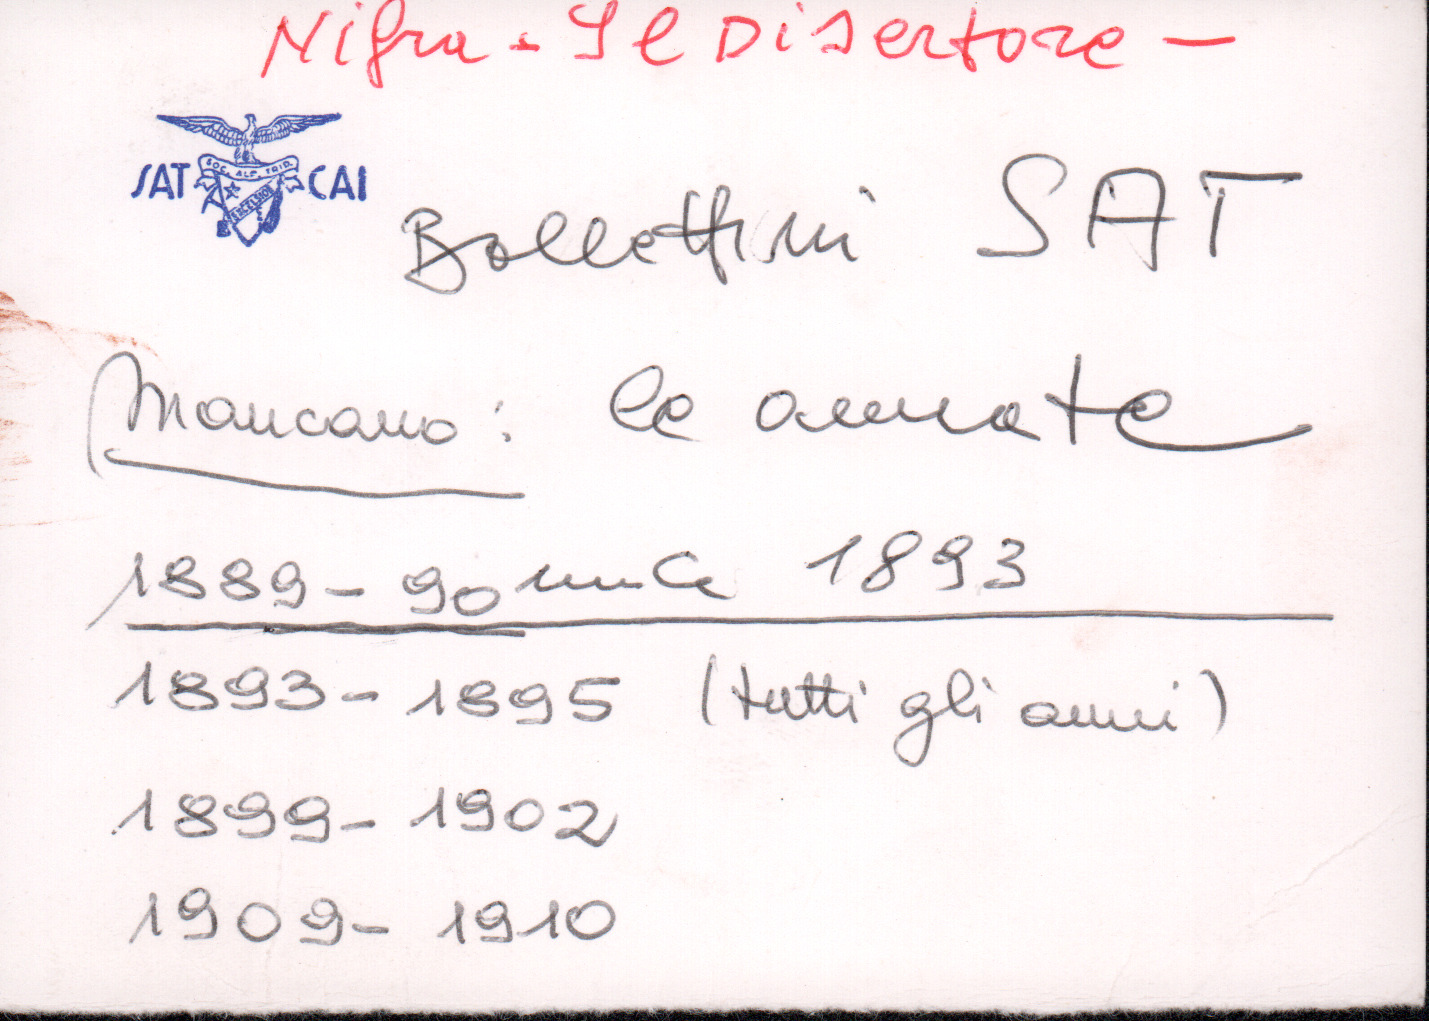 Nigra - Il Disertore -
SOC. ALP. TRID.
SAT CAI
EXCELSIOR
Bollettini SAT
Mancano: le annate
1889 - 90 1893
1893 - 1895 (tutti gli anni)
1899 - 1902
1909 - 1910